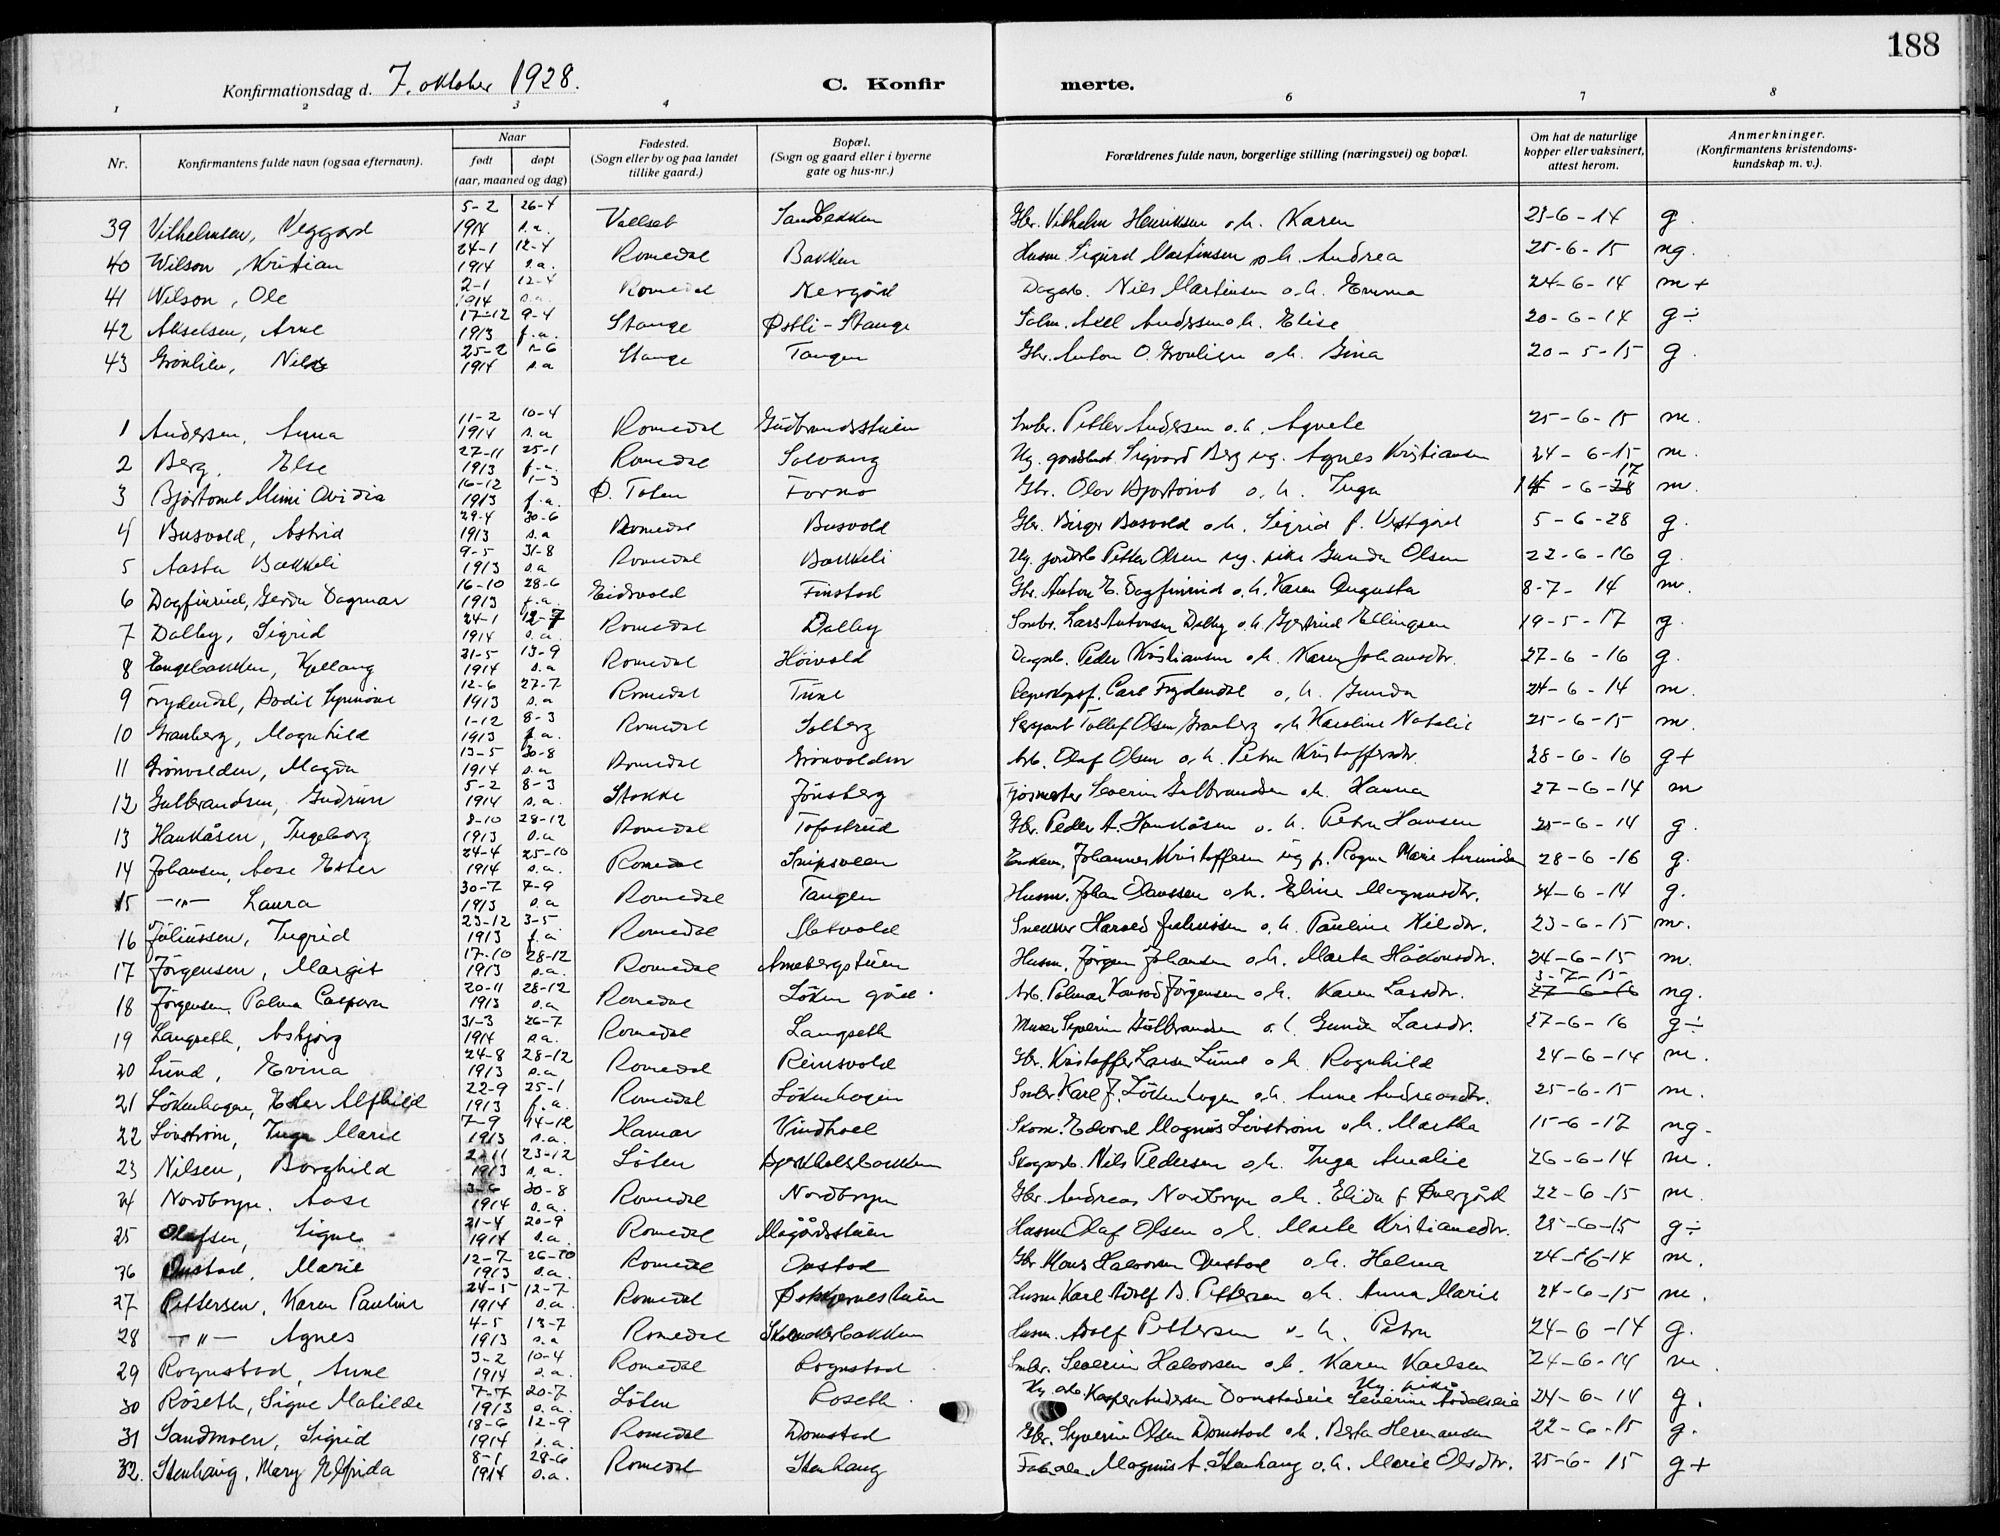 188
Konfirmationsdag d. 7. oktober 1928. C. Konfirmerte.
1 2 3 4 6 7 8
Nr. Konfirmantens fulde navn (ogsaa efternavn). Naar født døpt (aar, maaned og dag) Fødested. (Sogn eller by og paa landet tillike gaard.) Bopæl. (Sogn og gaard eller i byerne gate og hus-nr.) Forældrenes fulde navn, borgerlige stilling (næringsvei) og bopæl. Om hat de naturlige kopper eller vaksinert, attest herom. Anmerkninger. (Konfirmantens kristendomskundskap m. v.).
39 Vilhelmsen, Veggard 5-2 1914 26-4 s.a. Vallset Sandbakken Gbr. Vilhelm Henriksen o.h. Karen 23-6-14 g.
40 Wilson, Kristian 24-1 1914 12-4 s.a. Romedal Bakken Husm. Sigurd Martinsen o.h. Andrea 25-6-15 ng.
41 Wilson, Ole 2-1 1914 12-4 s.a. Romedal Nergård Dagarb. Nils Martinsen o.h. Emma 24-6-14 m+
42 Akselsen, Arne 17-12 1913 9-4 f.a. Stange Østli-Stange Axel Andersen o.h. Elise 20-6-14 g÷
43 Grönlien, Nils 25-2 1914 1-6 s.a Stange Tangen Gbr. Anton O. Gronlien o.h. Gina 20-5-15 g.
1 Andersen, Anna 11-2 1914 10-4 s.a Romedal Gudbrandsstuen Smbr. Petter Andersen o.h. Agnete 25-6-15 m.
2 Berg, Else 27-11 1913 25-1 f.a. Romedal Solvang Ug. Sigvard Berg ug. Agnes Kristiansen 24-6-15 m.
3 Björtomt Mimi Ovidia 16-12 1913 1-3 f.a. Ø. Toten Forno Gbr. Olav Bjortomt o.h. Inga 14-6-17 m.
4 Busvold, Astrid 29-4 1913 30-6 s.a Romedal Busvold Gbr. Birger Busvold o.h. Sigrid f. Vestgård 5-6-28 g.
5 Aasta Bakkeli 9-5 1913 31-8 s.a Romedal Bakkeli Ug. jordarb. Petter Olsen ug. pike Gunda Olsen 22-6-16 g.
6 Dagfinrud, Gerda Dagmar 16-10 1913 28-6 f.a. Eidsvold Finstad Gbr. Anton E. Dagfinrud o.h. Karen Augusta 8-7-14 m.
7 Dalby, Sigrid 24-1 1914 12-7 s.a. Romedal Dalby Smbr. Lars Antonsen Dalby o.h. Gjertrud Ellingsen 19-5-17 g.
8 Engebakken, Kjellaug 21-5 1914 13-9 s.a Romedal Höivold Dagarb. Peder Kristiansen o.h. Karen Johansdtr. 27-6-16 g.
9 Frydendal, Bodil Synnöve 12-6 1913 27-7 s.a Romedal Tune Carl Frydendal o.h. Gunda 24-6-14 m.
10 Granberg, Magnhild 1-12 1913 8-3 f.a. Romedal Solberg Sersjant Tollef Olsen Granberg o.h. Karoline Natalie 25-6-15 m.
11 Grönvolden, Magda 13-5 1914 30-8 s.a Romedal Grönvolden Arb. Olaf Olsen o.h. Petra Kristoffersdtr. 28-6-16 g+
12 Gulbrandsen, Gudrun 5-2 1914 8-3 s.a. Stokke Jönsberg Fjösmester Severin Gulbrandsen o.h. Hanna 27-6-14 m
13 Haukåsen, Ingeborg 8-10 1913 28-12 s.a Romedal Tofastrud Gbr. Peder A. Haukåsen o.h. Petra Hansen 25-6-14 g.
14 Johansen, Aase Ester 24-4 1914 25-10 s.a. Romedal Snipsveen Enkem. Johannes Kristoffersen ug p. Ragna Marie Amundsen 28-6-16 g.
15 -"- Laura 30-7 1913 7-9 s.a Romedal Tangen Husm. Johan Olaussen o.h. Eline Magnusdtr. 24-6-14 g.
16 Juliussen, Ingrid 23-12 1913 3-5 f.a Romedal Matvold Snekker Harald Juliussen o.h. Pauline Nilsdtr. 23-6-15 m.
17 Jörgensen, Margit 17-10 1913 28-12 s.a. Romedal Arnebergstuen Husm. Jörgen Johansen o.h. Marta Håkonsdtr. 24-6-15 m.
18 Jörgensen, Palma Caspara 20-11 1913 28-12 s.a Romedal Löken gård. Arb. Palmar Konrad Jörgensen o.h. Karen Larsdtr. 3-7-15 27-6-16 ng.
19 Langseth, Asbjörg 31-3 1914 26-7 s.a. Romedal Langseth Murer Syverin Gulbrandsen o.h. Gunda Larsdtr. 27-6-16 g÷
20 Lund, Evina 24-8 1913 28-12 s.a Romedal Reinsvold Gbr. Kristoffer Larsen Lund o.h. Ragnhild 24-6-14 m.
21 Lökenhagen, Ester Alfhild 22-9 1913 25-1 f.a. Romedal Lökenhagen Smbr. Karl J. Lökenhagen o.h. Anne Andreasdtr. 25-6-15 m.
22 Lövström, Inga Marie 7-9 1913 14-12 s.a. Hamar Vindhoel Skom. Edvard Magnus Lövström o.h. Martha 15-6-17 ng.
23 Nilsen, Borghild 2-11 1913 23-12 s.a. Löten Bjerkholsbakken Skogsarb. Nils Pedersen o.h. Inga Amalie 26-6-14 m.
24 Nordbryn, Aase 3-6 1914 30-8 s.a. Romedal Nordbryn Gbr. Andreas Nordbryn o.h. Elida f. 22-6-15 m.
25 Olafsen, Signe 21-4 1914 20-9 s.a. Romedal Magårdsstuen Husm. Olaf Olsen o.h. Marte Kristiansdtr. 25-6-15 g÷
26 Onstad, Marie 12-7 1913 26-10 s.a. Romedal Onstad Gbr. Hans Halvorsen Onstad o.h. Helma 24-6-14 m.
27 Pettersen, Karen Pauline 24-5 1914 12-7 s.a. Romedal Husm. Karl Adolf B. Pettersen o.h. Anna Marie 24-6-15 m.
28 -"- Agnes 4-5 1913 13-7 s.a Romedal Husm. Adolf Pettersen o.h. Petra 24-6-14 g.
29 Rognstad, Anne 3-2 1914 10-4 s.a. Romedal Rognstad Smbr. Severin Halvorsen o.h. Karen Karlsen 24-6-14 m.
30 Röseth, Signe Matilde 7-7 1913 20-7 s.a. Löten Roseth. Ug. arb. Kasper Andersen Domstadeie Ug. pike Severine 24-6-14 g.
31 Sandmoen, Sigrid 18-6 1914 12-9 s.a. Romedal Domstad Gbr. Syverin Olsen Domstad o.h. Berta Hermansen 22-6-15 g.
32. Stenhaug, Mary Elfrida 8-1 1914 28-6 s.a. Romedal Stenhaug Magnus A. Stenhaug o.h. Marie Olsdtr. 25-6-15 g+